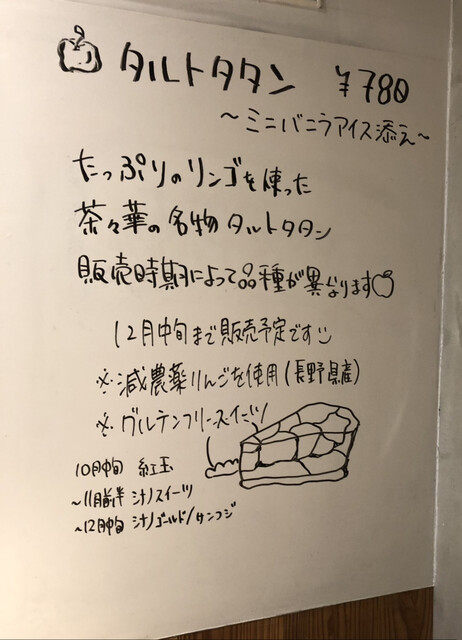 タルトタタン ￥780
～ミニバニラアイス添え～
たっぷりのリンゴを使った
茶々華の名物タルトタタン
販売時期によって品種が異なります
12月中旬まで販売予定です
※減農薬りんごを使用(長野県産)
※グルテンフリースイーツ
10月中旬 紅玉
～11月前半 シナノスイーツ
～12月中旬 シナノゴールド/サンフジ